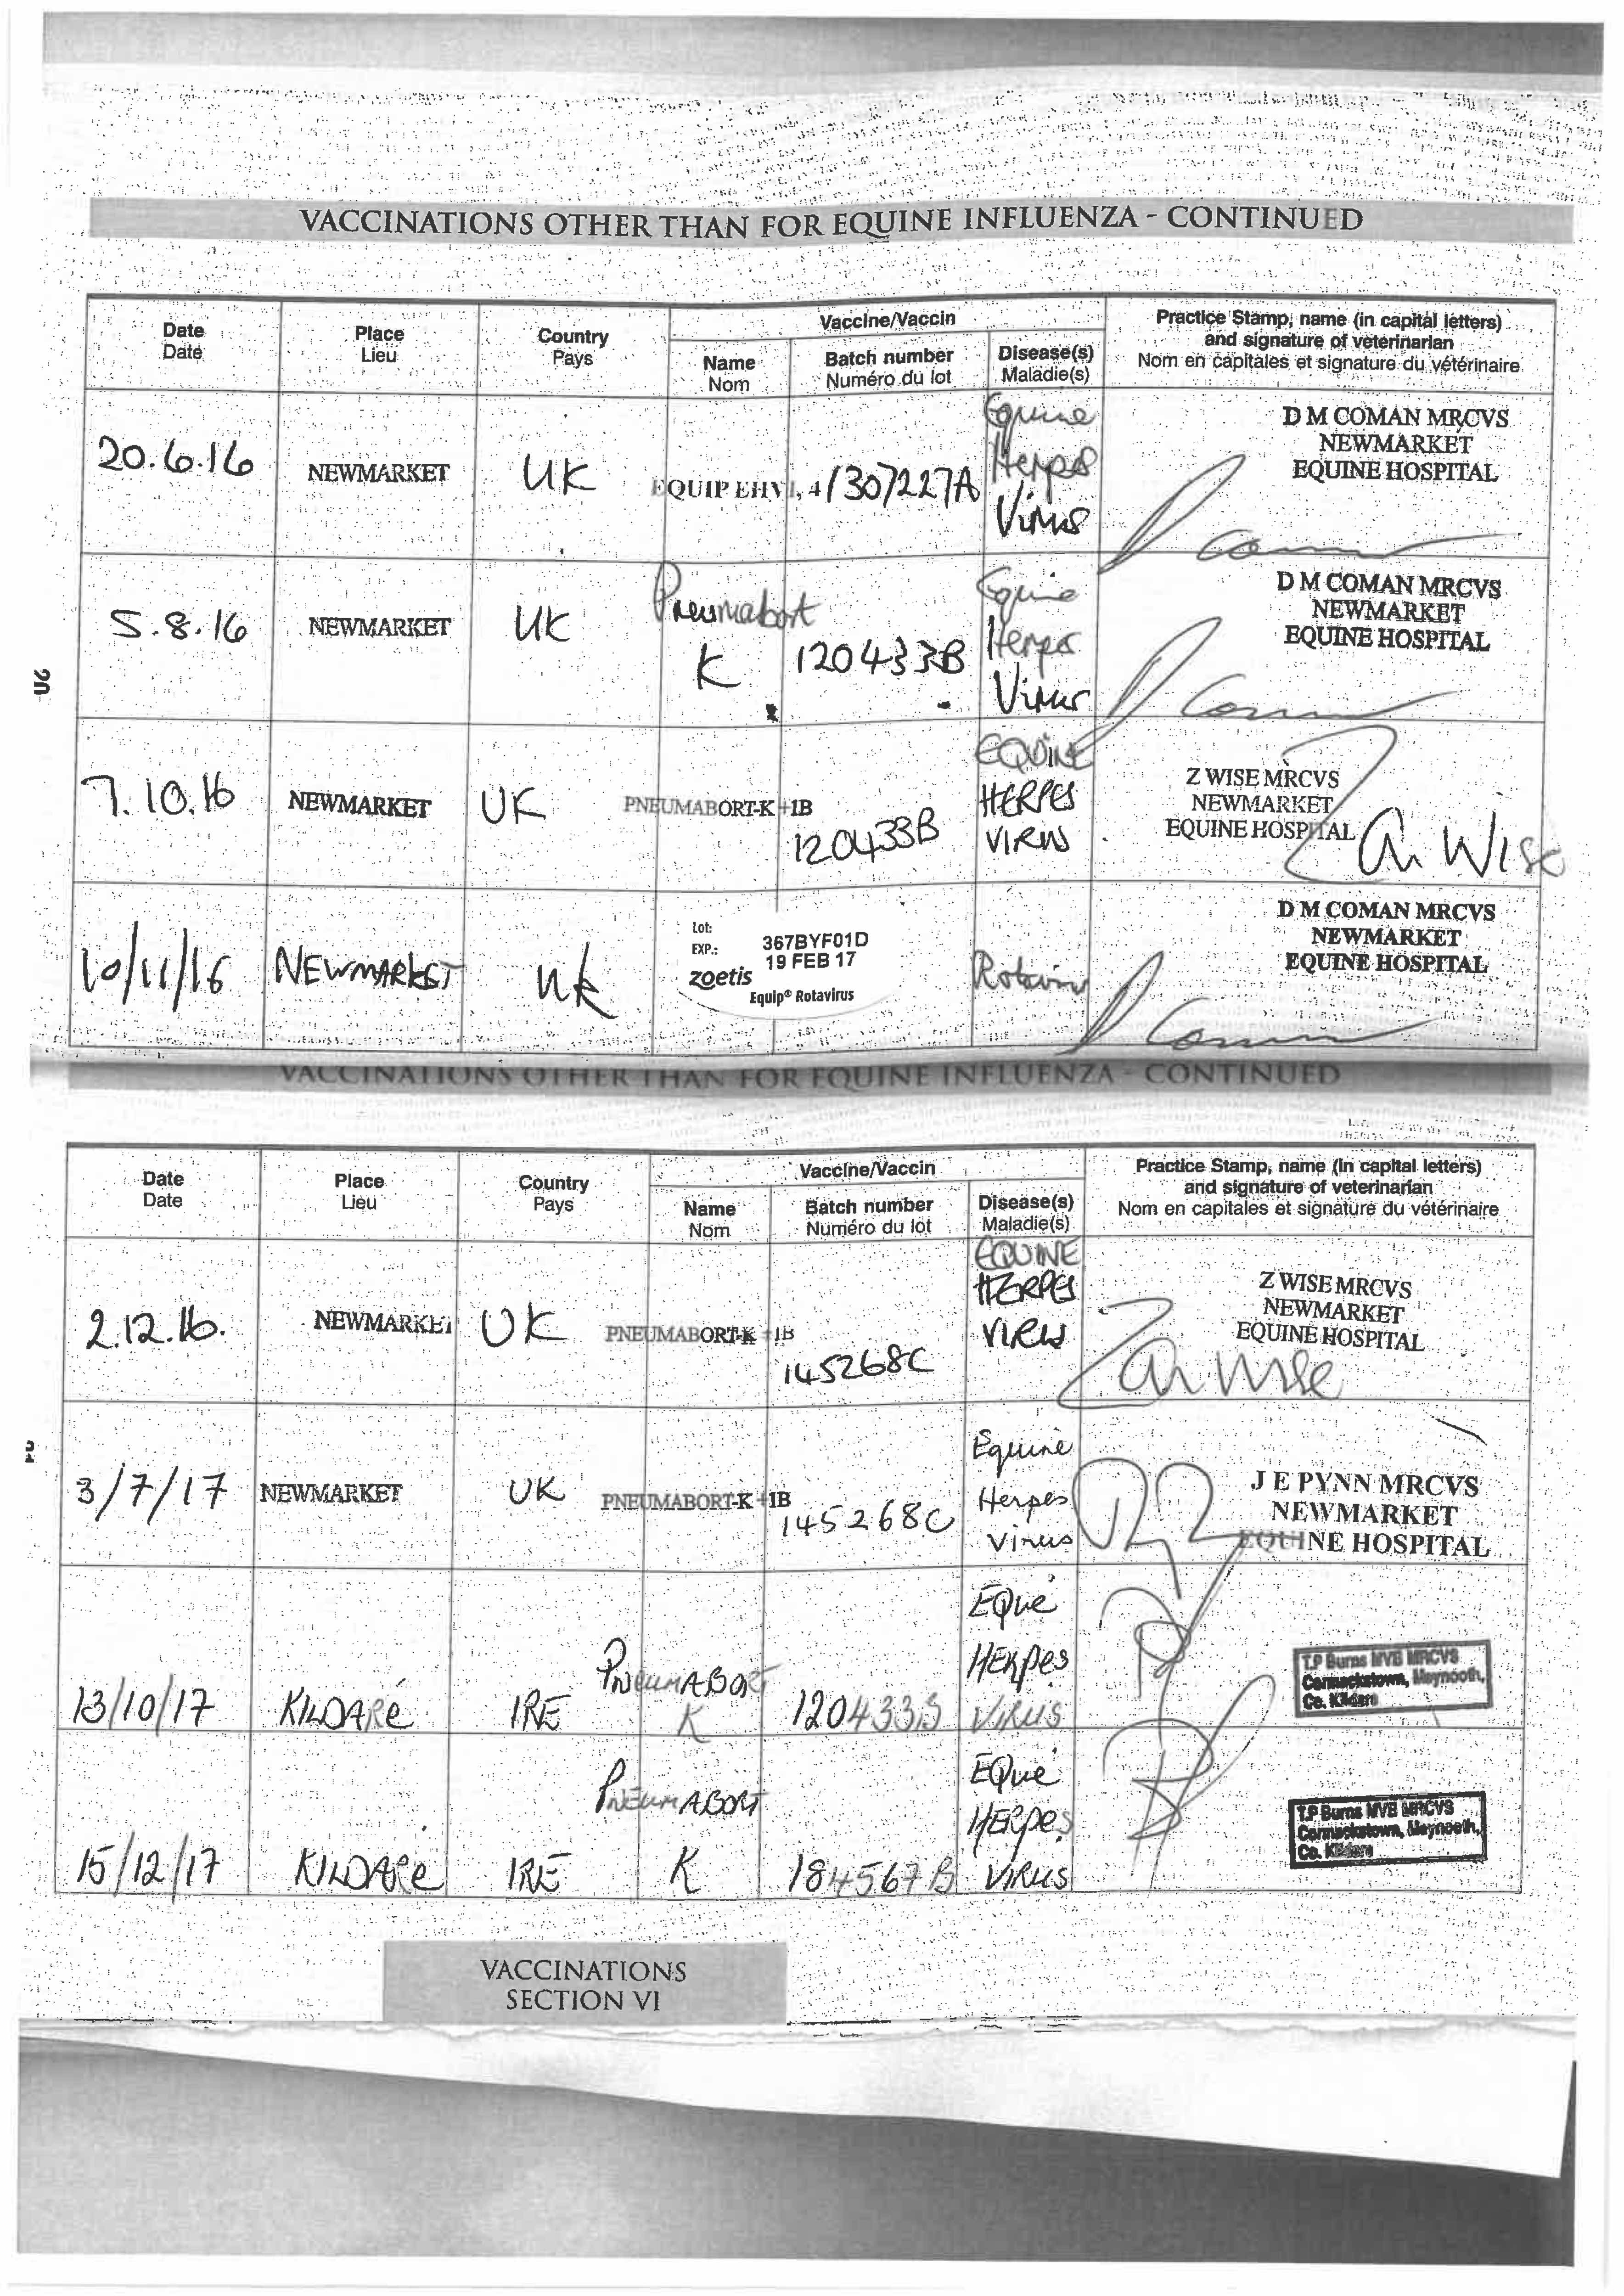 VACCINATIONS OTHER THAN FOR EQUINE INFLUENZA - CONTINUED
Date Place Country Vaccine/Vaccin Practice Stamp, name (in capital letters)
Date Lieu Pays Name Batch number Disease(s) and signature of veterinarian
Nom Numéro du lot Maladie(s) Nom en capitales et signature du vétérinaire
Equine D M COMAN MRCVS
20.6.16 NEWMARKET UK EQUIP EHV 1, 4 1307227A Herpes NEWMARKET
Virus EQUINE HOSPITAL
Pneumabort Equine D M COMAN MRCVS
5.8.16 NEWMARKET UK K 120433B Herpes NEWMARKET
Virus EQUINE HOSPITAL
20
EQUINE Z WISE MRCVS
7.10.16 NEWMARKET UK PNEUMABORT-K +1B HERPES NEWMARKET
120433B VIRUS EQUINE HOSPITAL
Wise
Lot: 367BYF01D D M COMAN MRCVS
EXP.: 19 FEB 17 NEWMARKET
10/11/16 NEWMARKET UK zoetis EQUINE HOSPITAL
Equip® Rotavirus
VACCINATIONS OTHER THAN FOR EQUINE INFLUENZA - CONTINUED
Date Place Country Vaccine/Vaccin Practice Stamp, name (in capital letters)
Date Lieu Pays Name Batch number Disease(s) and signature of veterinarian
Nom Numéro du lot Maladie(s) Nom en capitales et signature du vétérinaire
EQUINE Z WISE MRCVS
2.12.16. NEWMARKET UK PNEUMABORT-K +1B HERPES NEWMARKET
145268C VIRUS EQUINE HOSPITAL
Wise
Equine J E PYNN MRCVS
3/7/17 NEWMARKET UK PNEUMABORT-K +1B Herpes NEWMARKET
145268C Virus EQUINE HOSPITAL
EQue T.P Burns MVB MRCVS
PNEUMABORT HERpes Cormackstown, Maynooth,
13/10/17 KILDARe IRE K VIRUS Co. Kildare
EQue T.P Burns MVB MRCVS
PNEUMABORT HERpes Cormackstown, Maynooth,
15/12/17 KILDARe IRE K 184567B VIRUS Co. Kildare
VACCINATIONS
SECTION VI